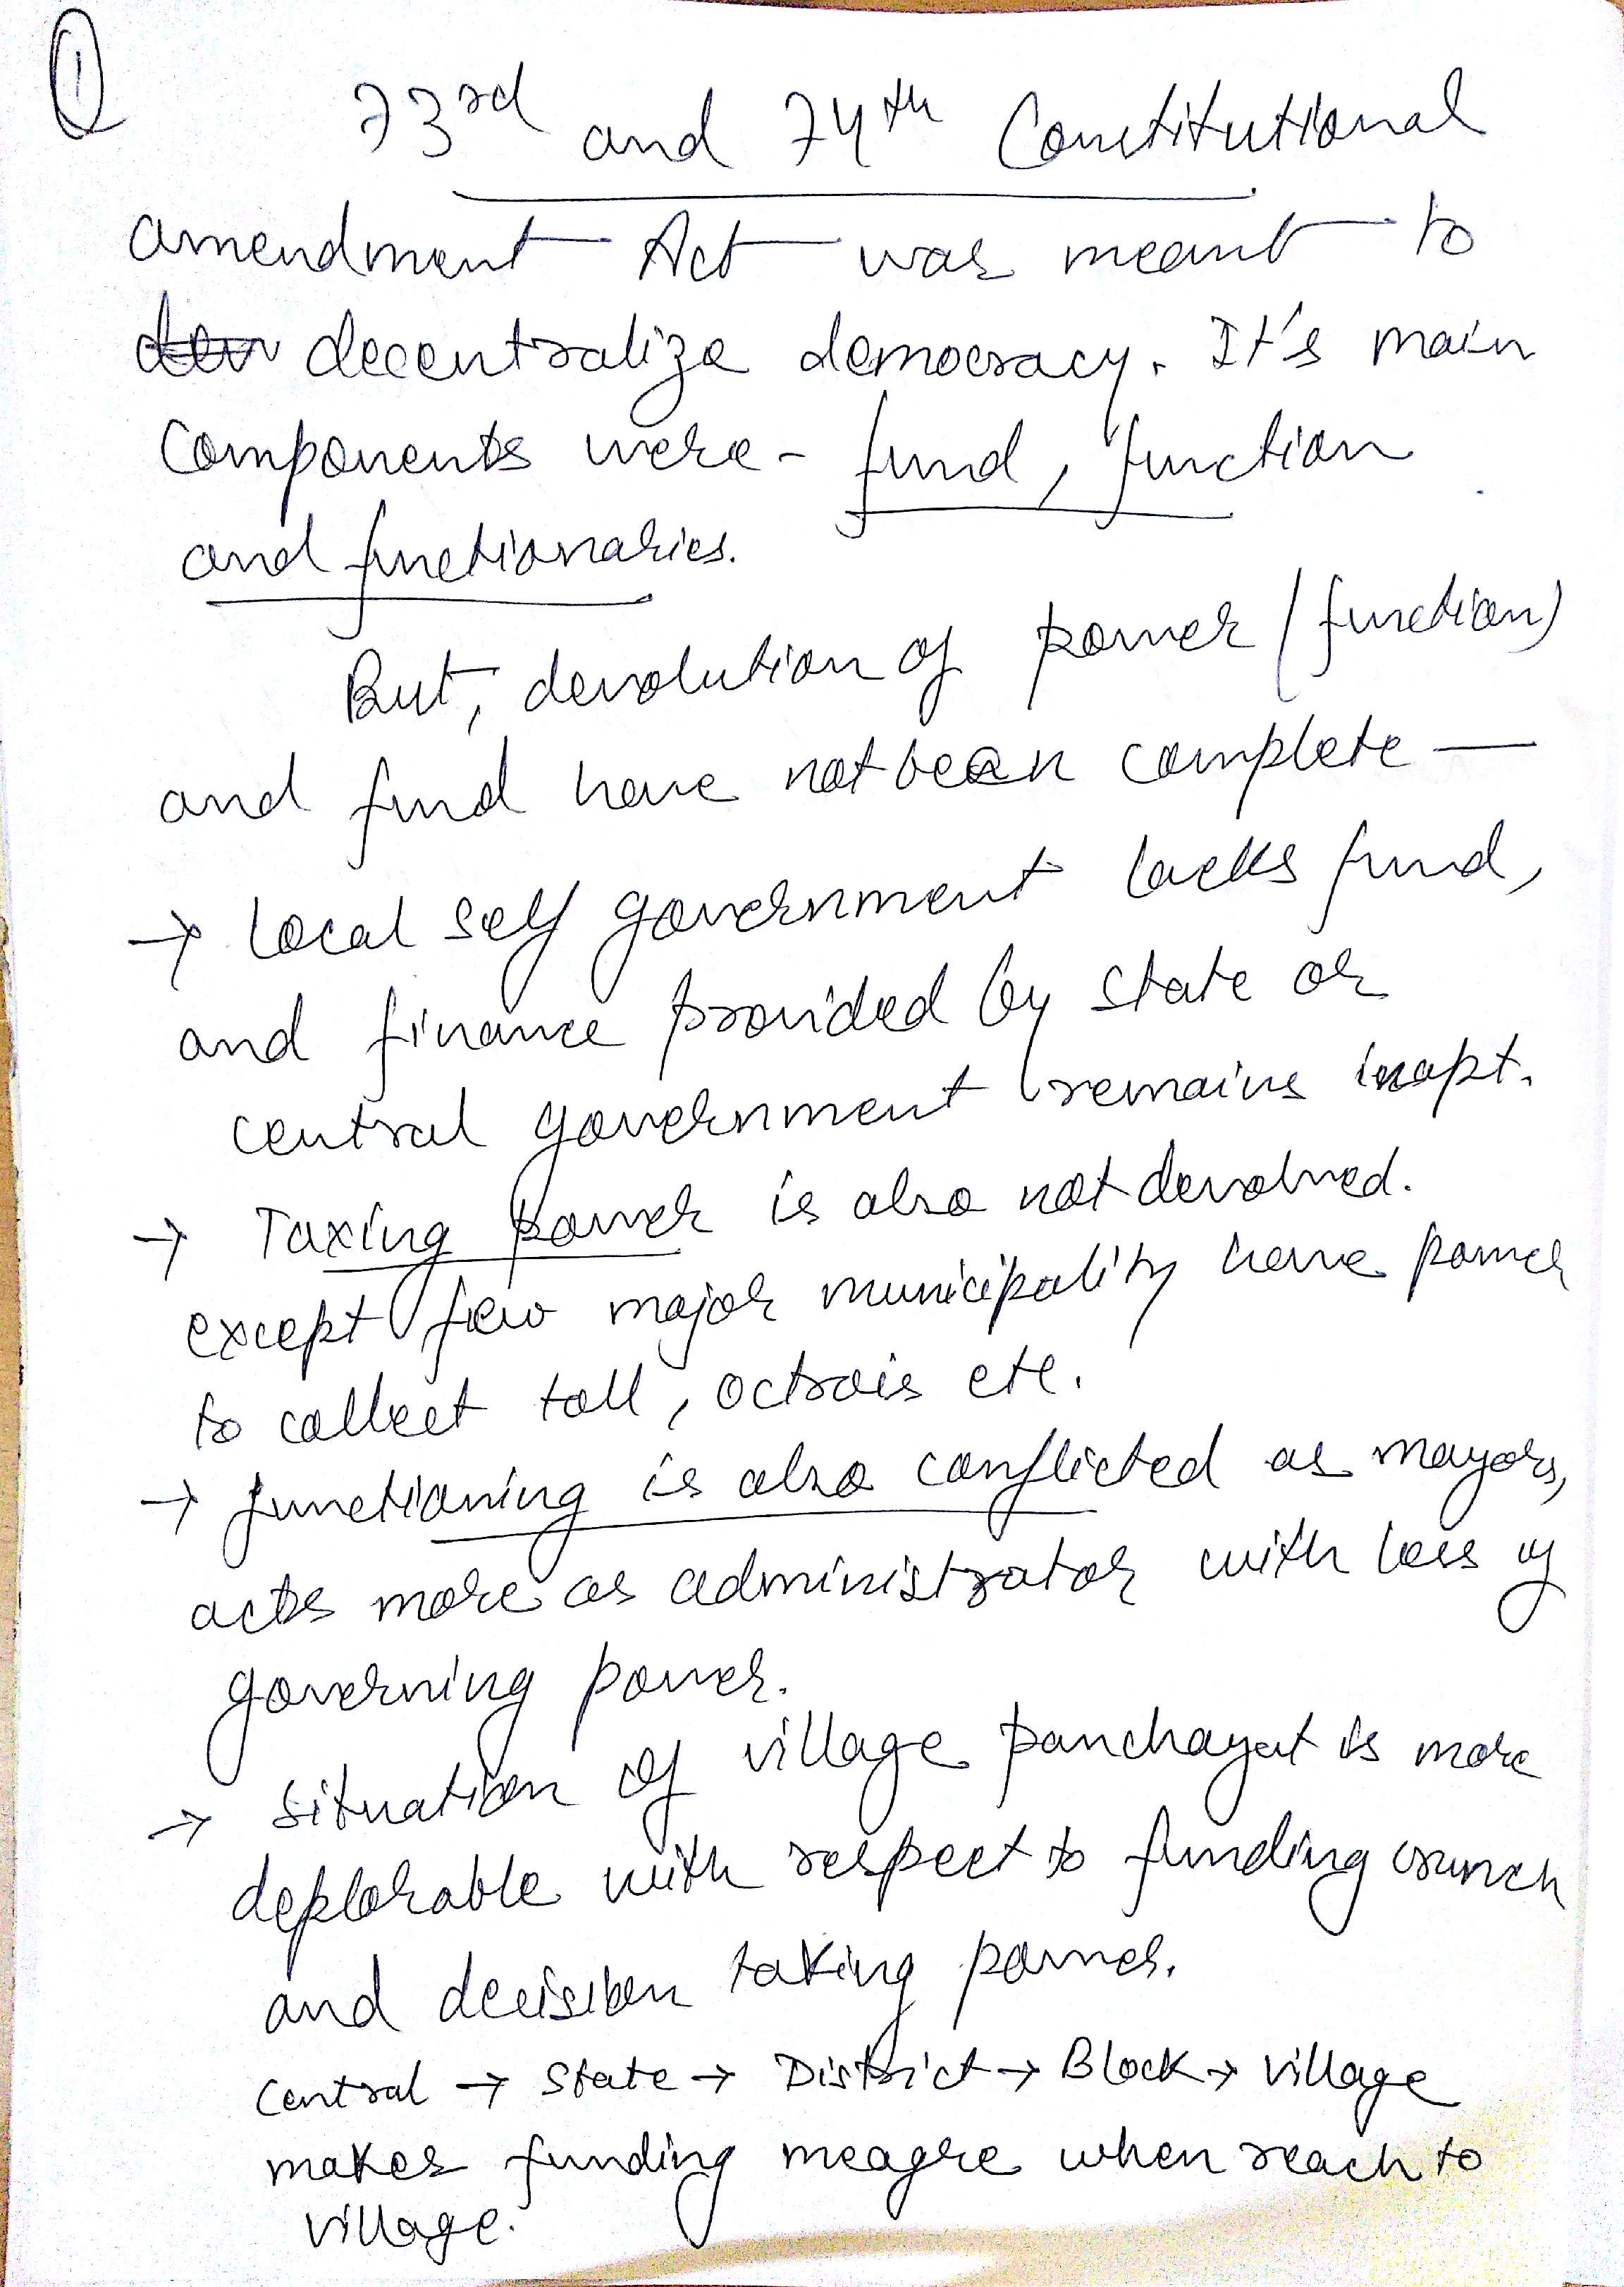 1
73rd and 74th Constitutional
amendment Act was meant to
decentralize democracy. It's main
Components were - fund, function
and functionaries.
But, devolution of power (function)
and fund have not been complete —
→ Local self government lacks fund,
and finance provided by state or
central government remains inapt.
→ Taxing power is also not devolved.
except few major municipality have power
to collect toll, octrois etc.
→ functioning is also conflicted as mayors,
acts more as administrator with less of
governing power.
→ situation of village panchayat is more
deplorable with respect to funding crunch
and decision taking power.
Central → State → District → Block → Village
makes funding meagre when reach to
village.